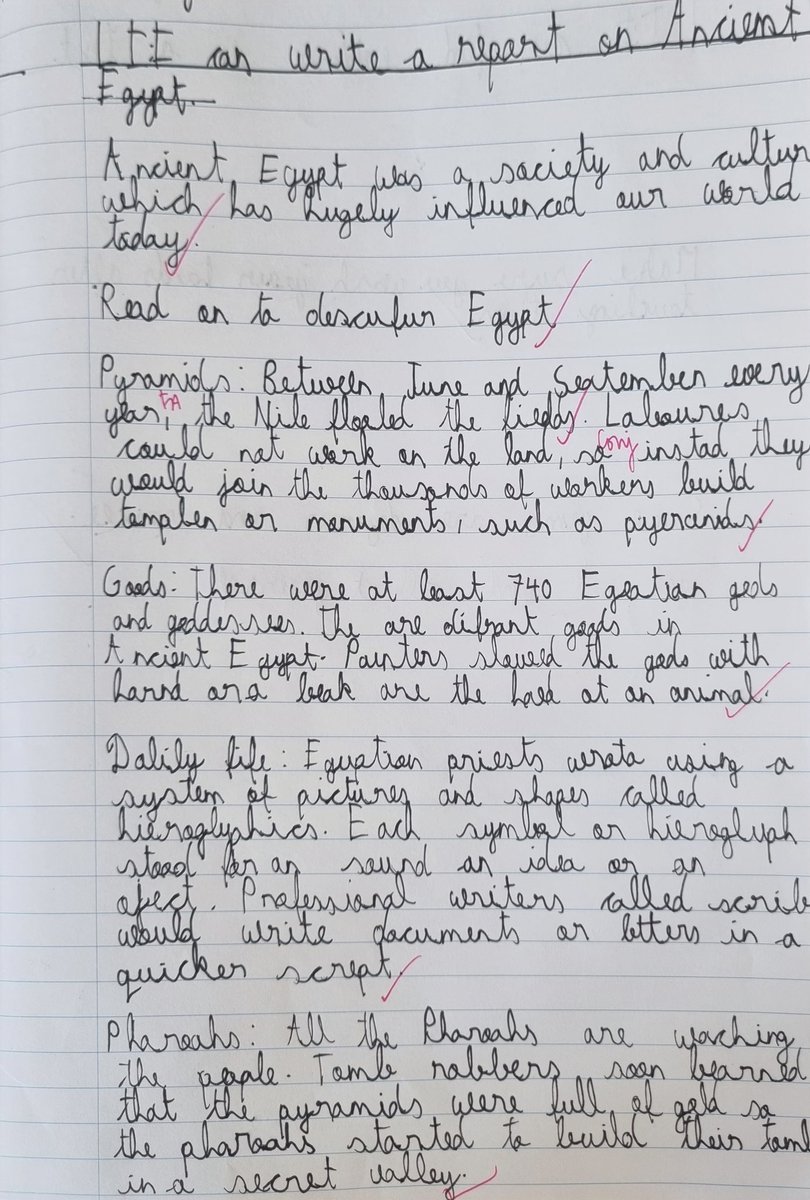 LI: I can write a report on Ancient
Egypt.
Ancient Egypt was a society and cultur
which has hugely influenced our world
today.
Read on to descufur Egypt
Pyramids: Between June and September every
year, the Nile floaled the fields. Laboures
could not work on the land, so instad they
would join the thousands of workers build
templen or monuments, such as pyeramids.
Goods: There were at least 740 Egeatian gods
and goddesses. The are difrant goods in
Ancient Egypt. Painters slowed the gods with
harnd ora beak are the haed at an animal.
Dalily life: Eguption priests wrata using a
system of pictures and shapes called
hieroglyphics. Each symbol or hieroglyph
stood for an sound an idea or an
ofect. Professional writers called scrib
would write documents or letters in a
quicker script.
Pharoahs: All the Pharoahs are waching
the peaple. Tomb robbers soon learned
that the pyramids were full of gold so
the pharoahs started to build their tomb
in a secret valley.